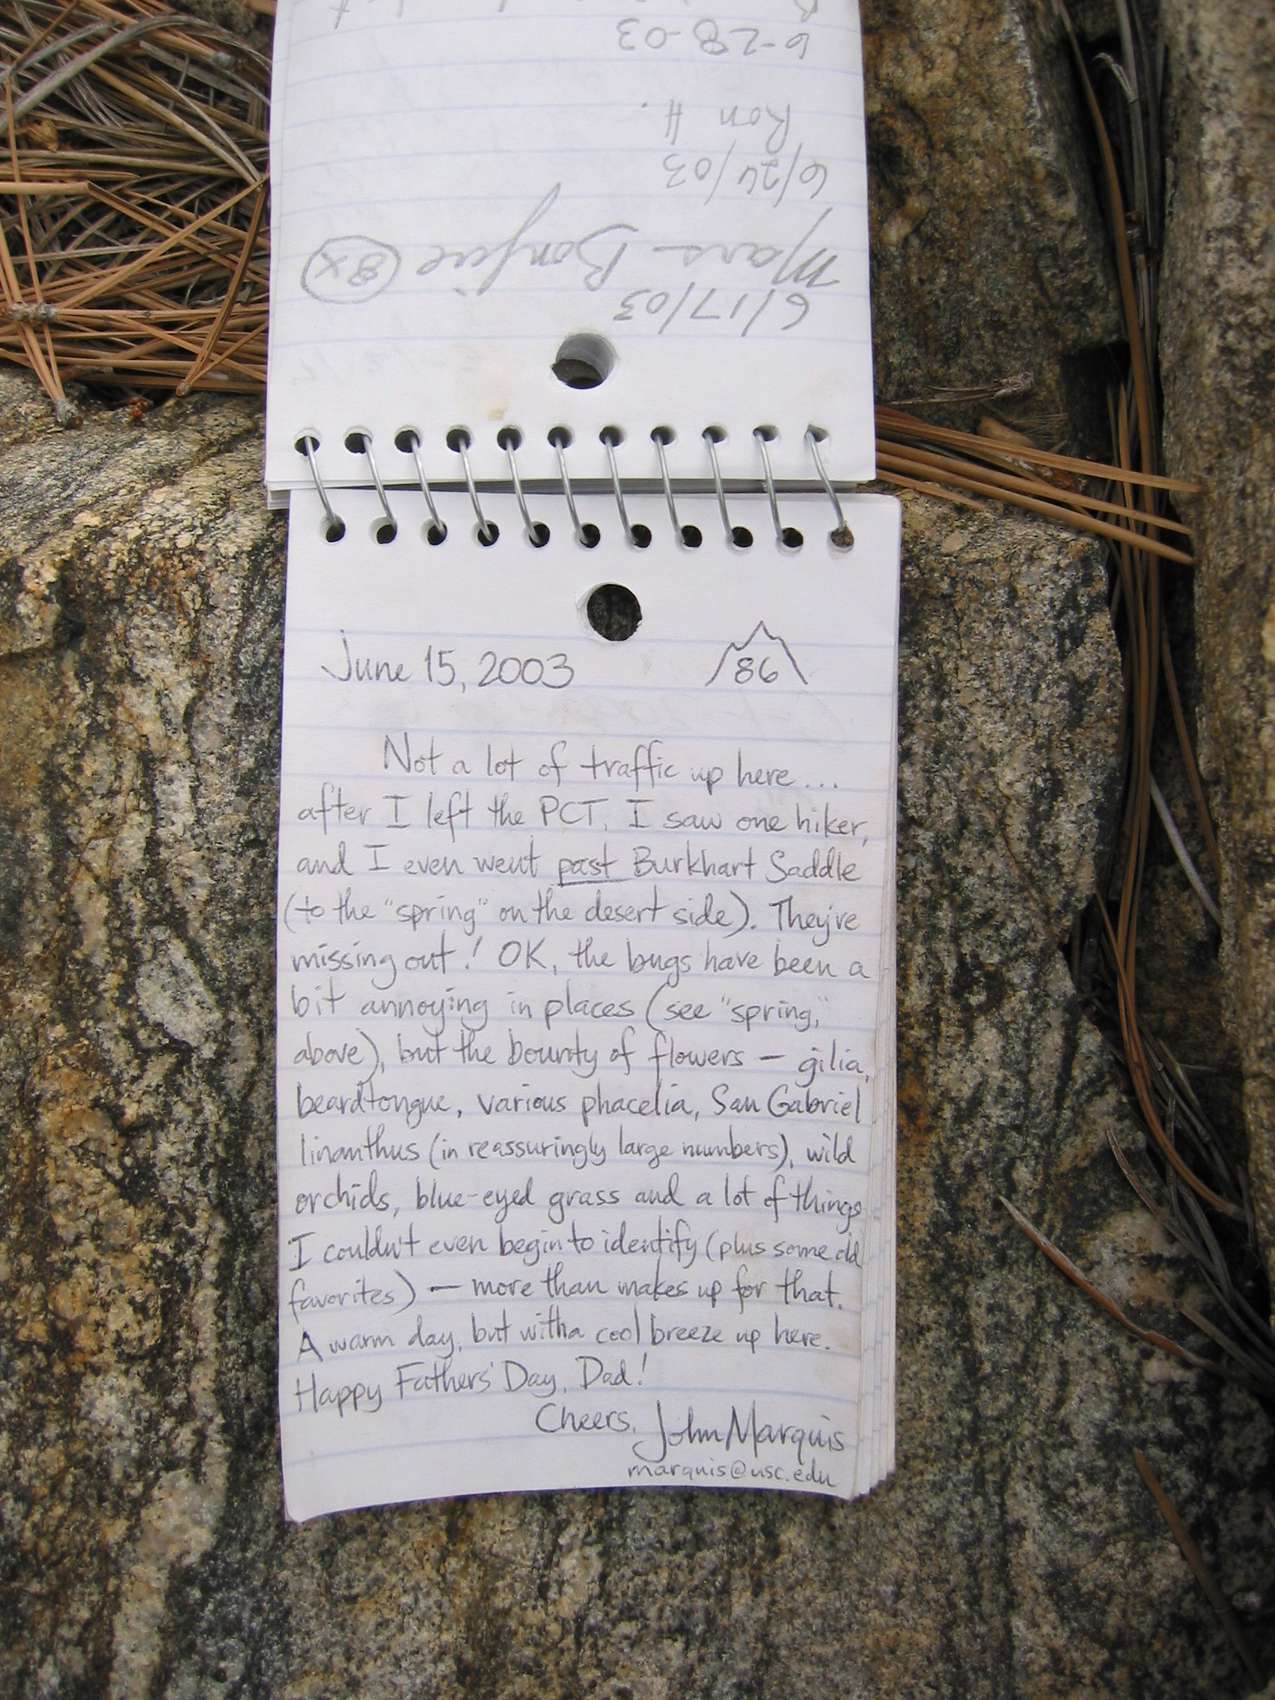 6-28-03
Ron H.
6/24/03
Marc Bonfire 8x
6/17/03
June 15, 2003 86
Not a lot of traffic up here...
after I left the PCT, I saw one hiker,
and I even went past Burkhart Saddle
(to the "spring" on the desert side). They're
missing out! OK, the bugs have been a
bit annoying in places (see "spring,"
above), but the bounty of flowers — gilia,
beardtongue, various phacelia, San Gabriel
linanthus (in reassuringly large numbers), wild
orchids, blue-eyed grass and a lot of things
I couldn't even begin to identify (plus some old
favorites) — more than makes up for that.
A warm day, but with a cool breeze up here.
Happy Fathers' Day, Dad!
Cheers, John Marquis
marquis@usc.edu